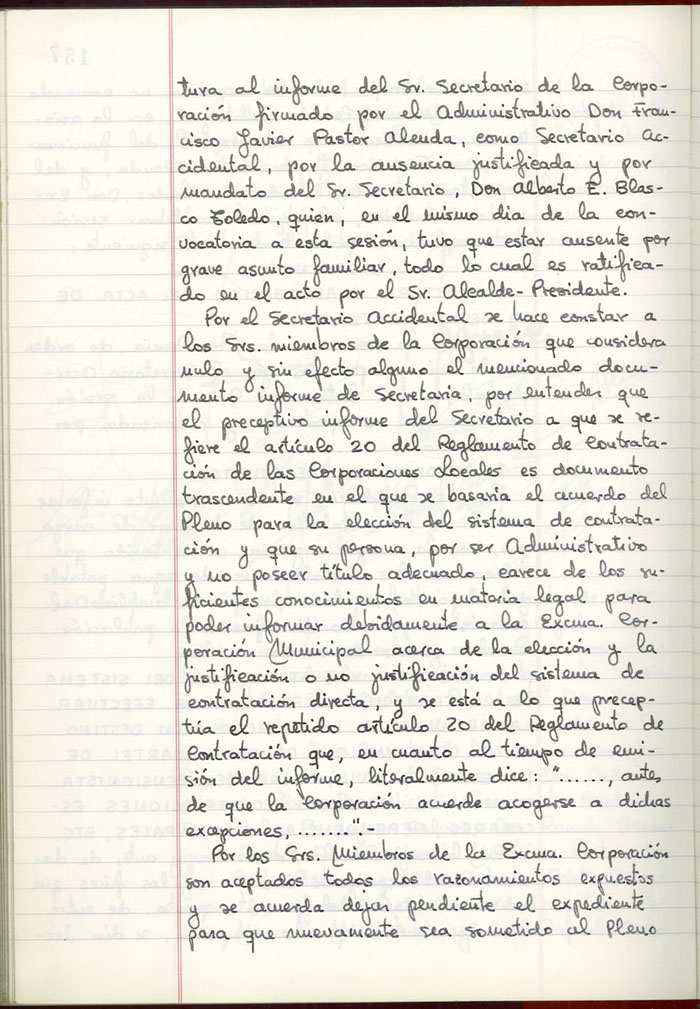 tura al informe del Sr. Secretario de la Corpo-
ración firmado por el Administrativo Don Fran-
cisco Javier Pastor Alenda, como Secretario Ac-
cidental, por la ausencia justificada y por
mandato del Sr. Secretario, Don Alberto E. Blas-
co Toledo, quien, en el mismo dia de la con-
vocatoria a esta sesión, tuvo que estar ausente por
grave asunto familiar, todo lo cual es ratifica-
do en el acto por el Sr. Alcalde-Presidente.
Por el Secretario Accidental se hace constar a
los Srs. miembros de la Corporación que considera
nulo y sin efecto alguno el mencionado docu-
mento informe de Secretaria, por entender que
el preceptivo informe del Secretario a que se re-
fiere el artículo 20 del Reglamento de Contrata-
ción de las Corporaciones Locales es documento
trascendente en el que se basaría el acuerdo del
Pleno para la elección del sistema de contrata-
ción y que su persona, por ser Administrativo
y no poseer título adecuado, carece de los su-
ficientes conocimientos en materia legal para
poder informar debidamente a la Excma. Cor-
poración Municipal acerca de la elección y la
justificación o no justificación del sistema de
contratación directa, y se está a lo que precep-
túa el repetido artículo 20 del Reglamento de
Contratación que, en cuanto al tiempo de emi-
sión del informe, literalmente dice: "......, antes
de que la Corporación acuerde acogerse a dichas
excepciones, ......."-
Por los Srs. Miembros de la Excma. Corporación
son aceptados todos los razonamientos expuestos
y se acuerda dejar pendiente el expediente
para que nuevamente sea sometido al Pleno